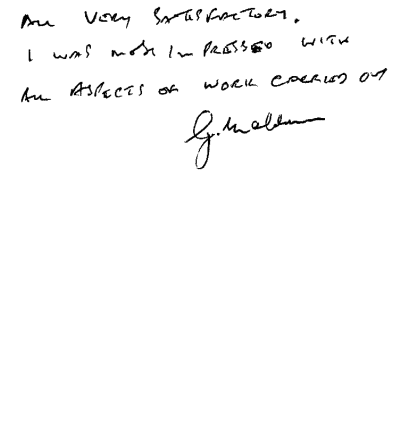 ALL VERY SATISFACTORY.
I WAS MOST IMPRESSED WITH
ALL ASPECTS OF WORK CARRIED OUT
G.